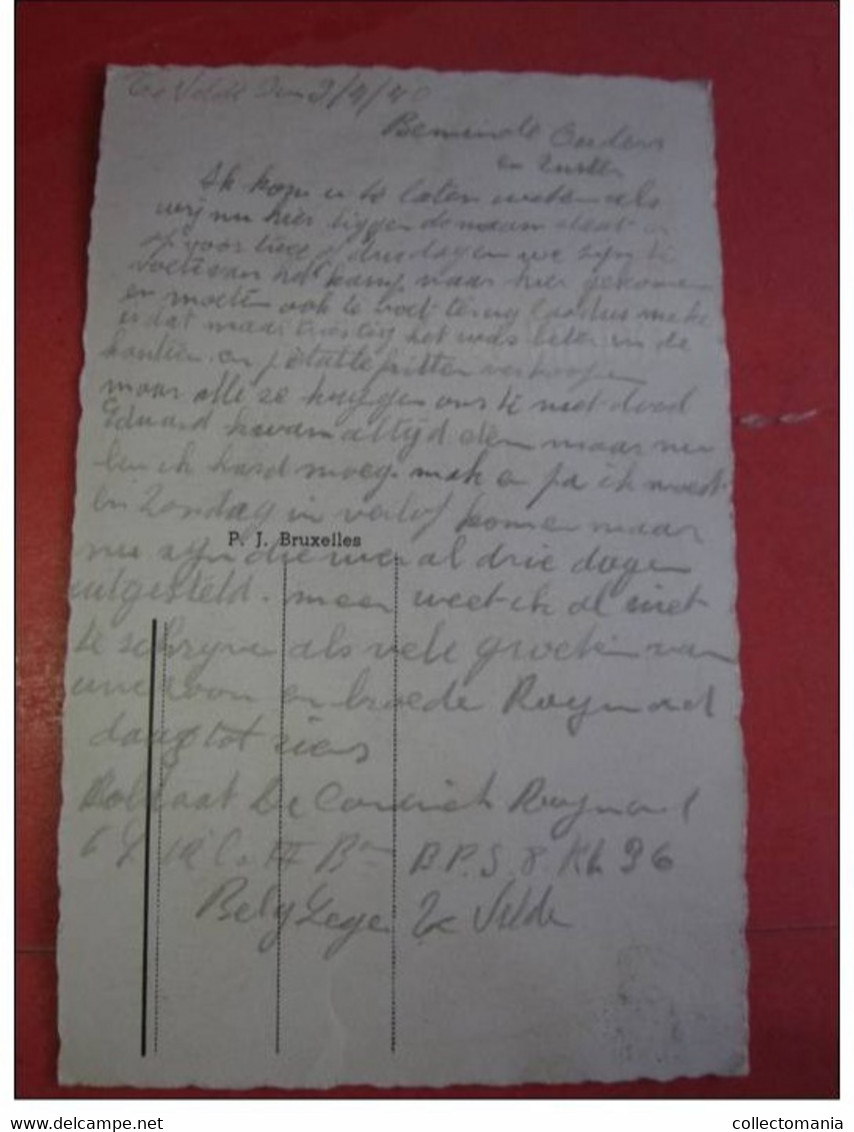 Te Velde den 3/4/40
Beminde Ouders
en zuster
Ik kom u te laten weten als
wij nu hier liggen de maan staat
op voor twee of drie dagen we zijn te
voete van het kamp naar hier gekomen
en moeten ook te voet terug
is dat maar triestig het was beter in de
kantien en petatte fritten verkoopen
maar alle ze krygen ons te niet dood
Eduard kwam altijd elen maar nu
ben ik hard moeg. mah en pa ik moest
bij Zondag in verlof komen maar
nu zijn die weer al drie dagen
P. J. Bruxelles
uitgesteld. meer weet ik al niet
te schryven als vele groeten van
uwe zoon en broede Raymond
daag tot ziens
Soldaat De Coninck Raymond
Co II Bon B.P.S. 8 Kl 36
Belg Leger Te Velde
www.delcampe.net
collectomania